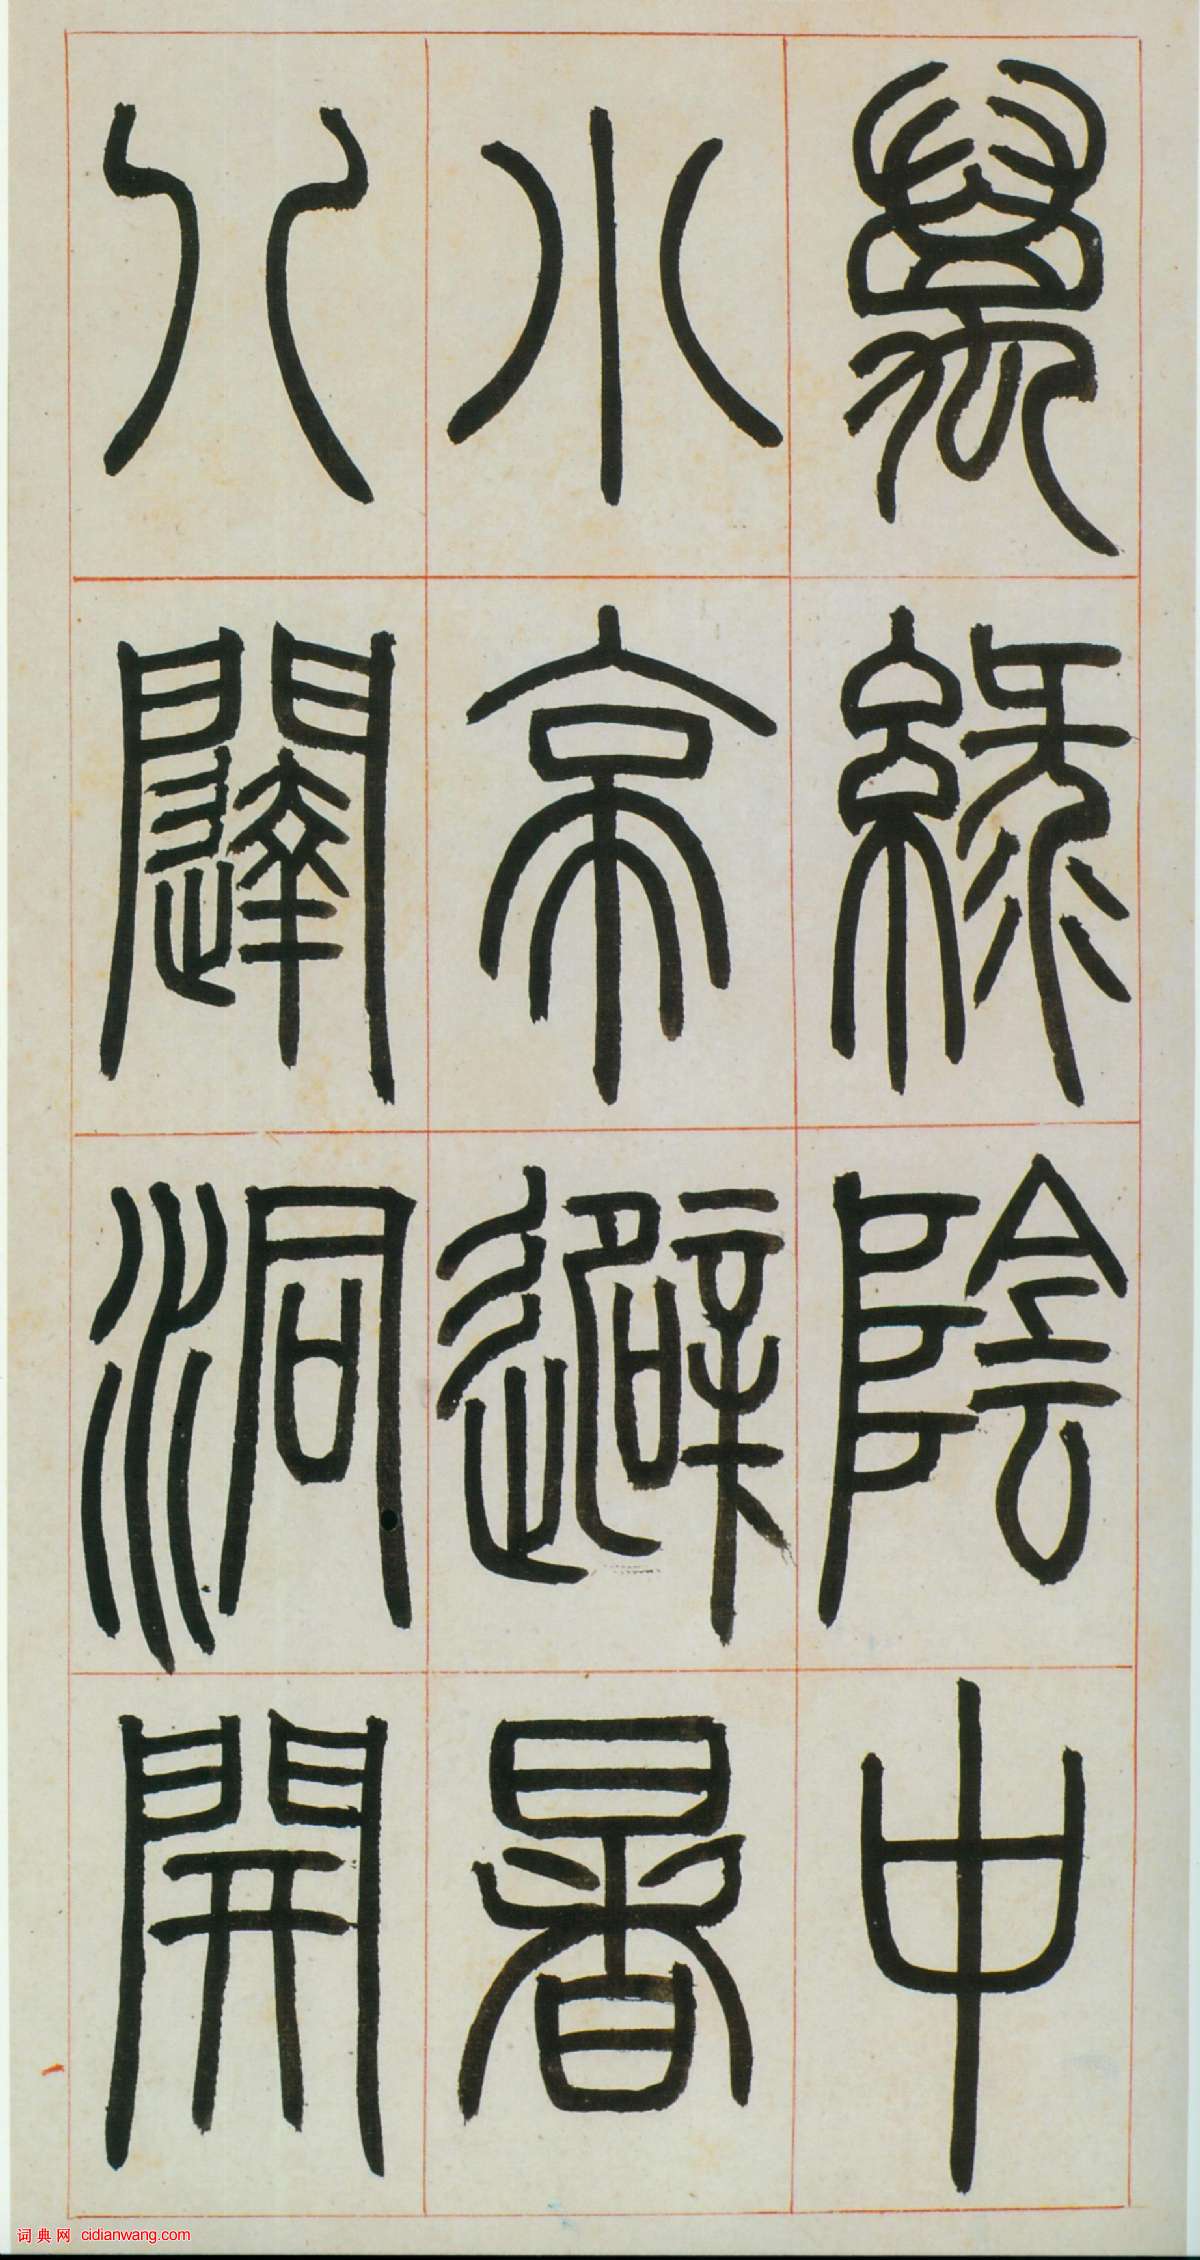 萬綠陰中
小亭避暑
八闥洞開
词典网 cidianwang.com